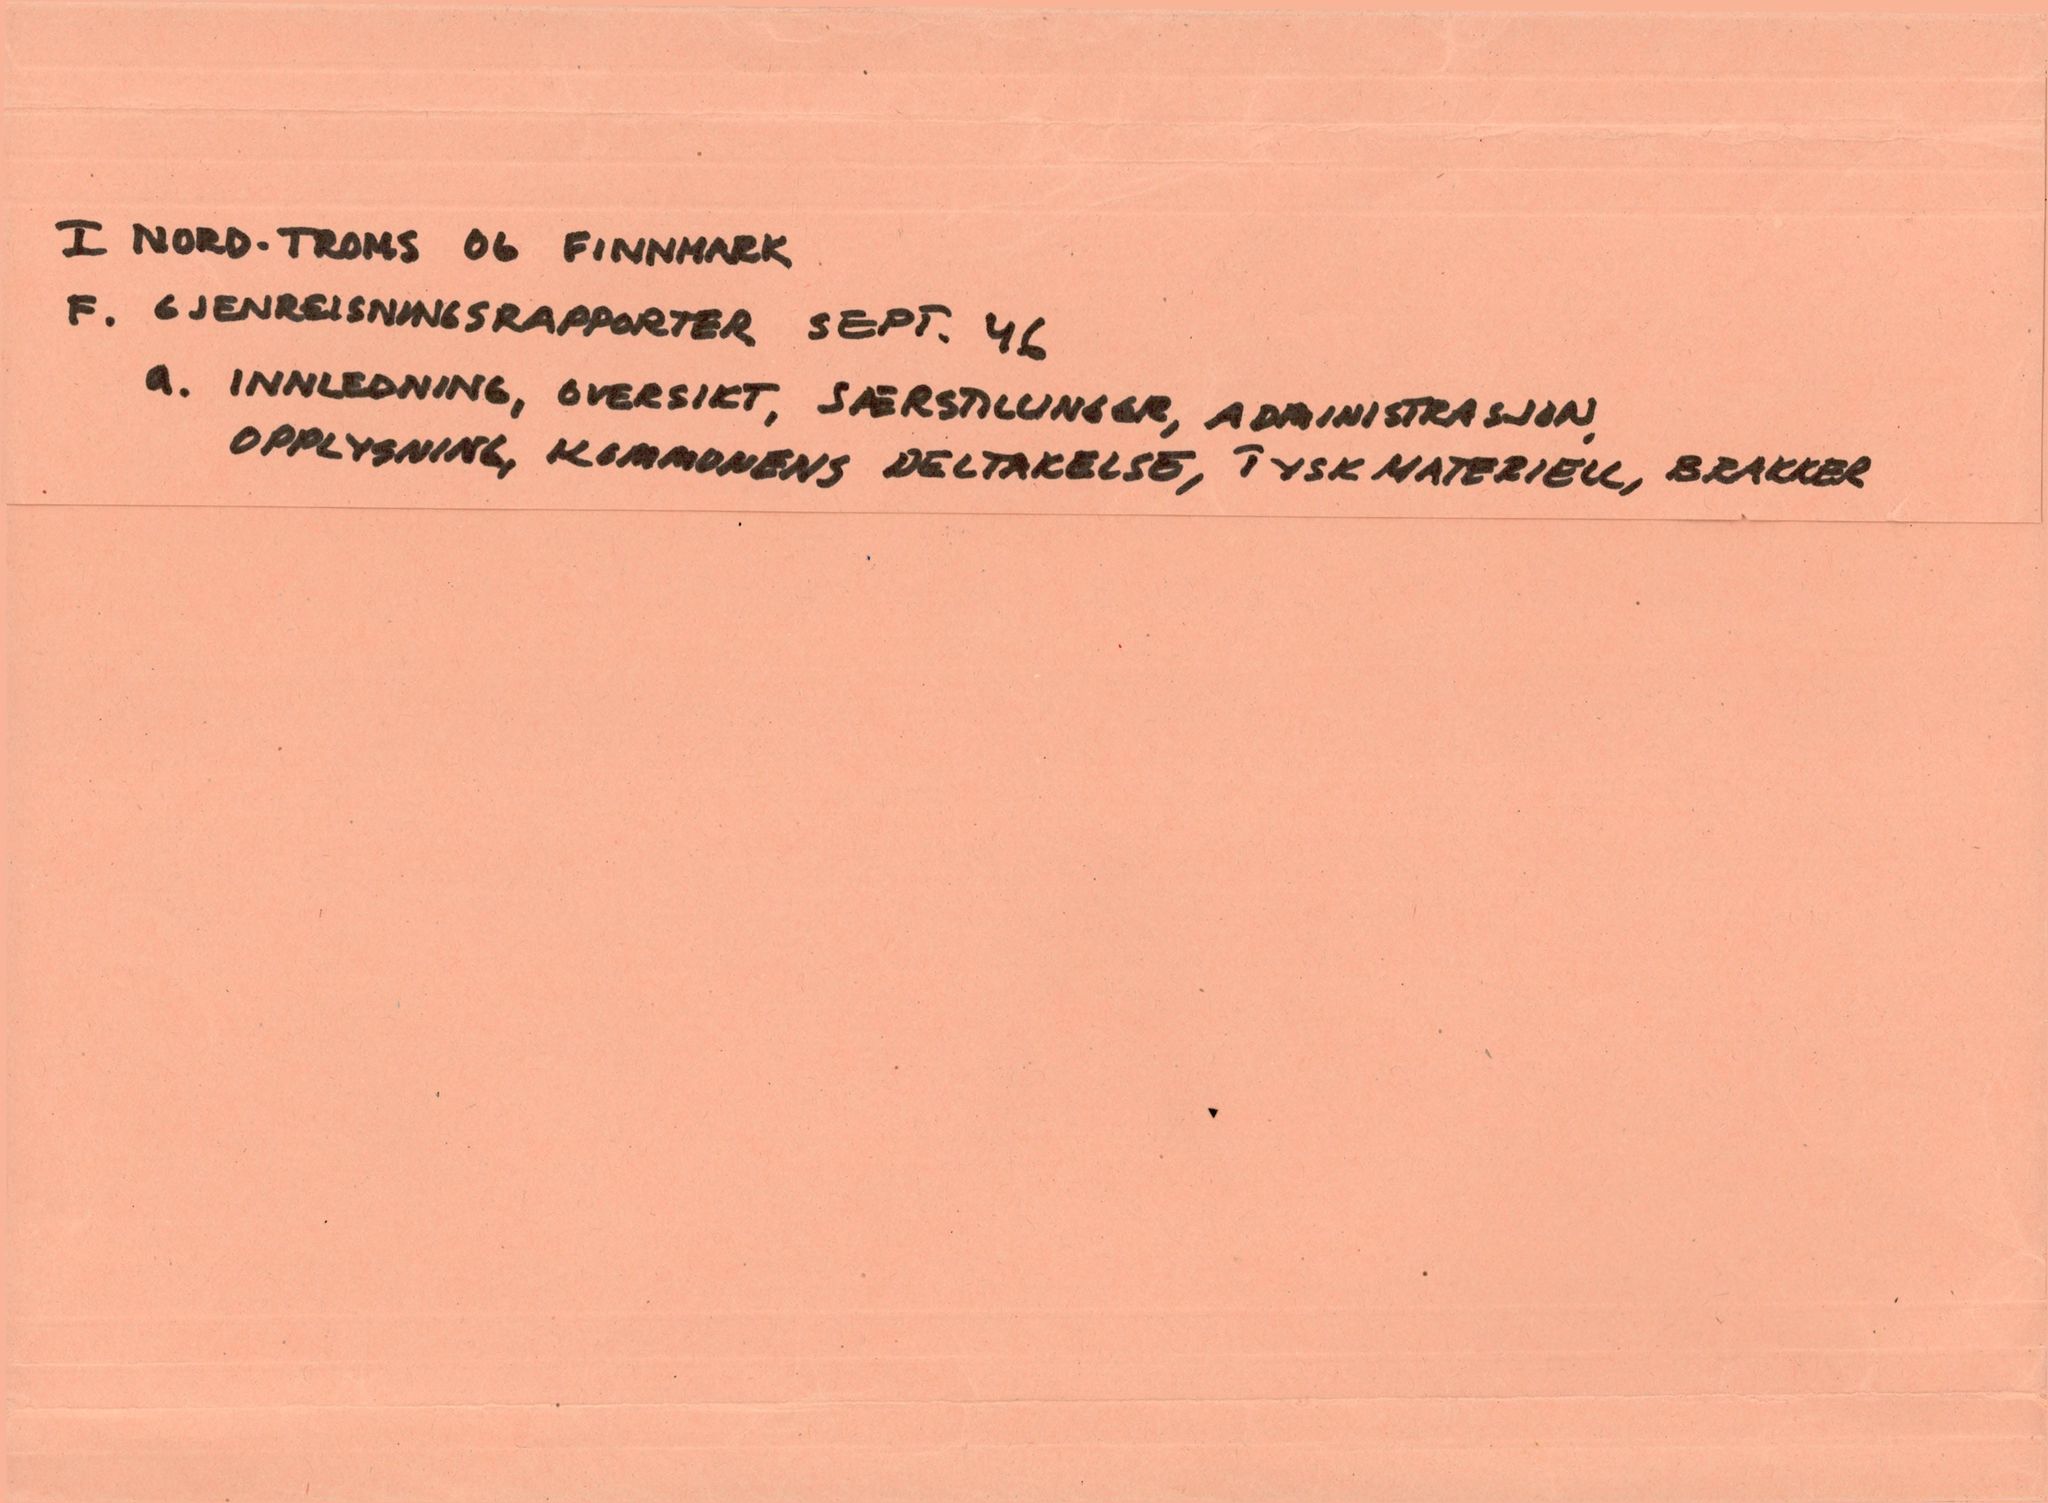 I NORD-TROMS OG FINNMARK
F. GJENREISNINGSRAPPORTER SEPT. 46
a. INNLEDNING, OVERSIKT, SÆRSTILLINGER, ADMINISTRASJON,
OPPLYSNING, KOMMONENS DELTAKELSE, TYSK MATERIELL, BRAKKER